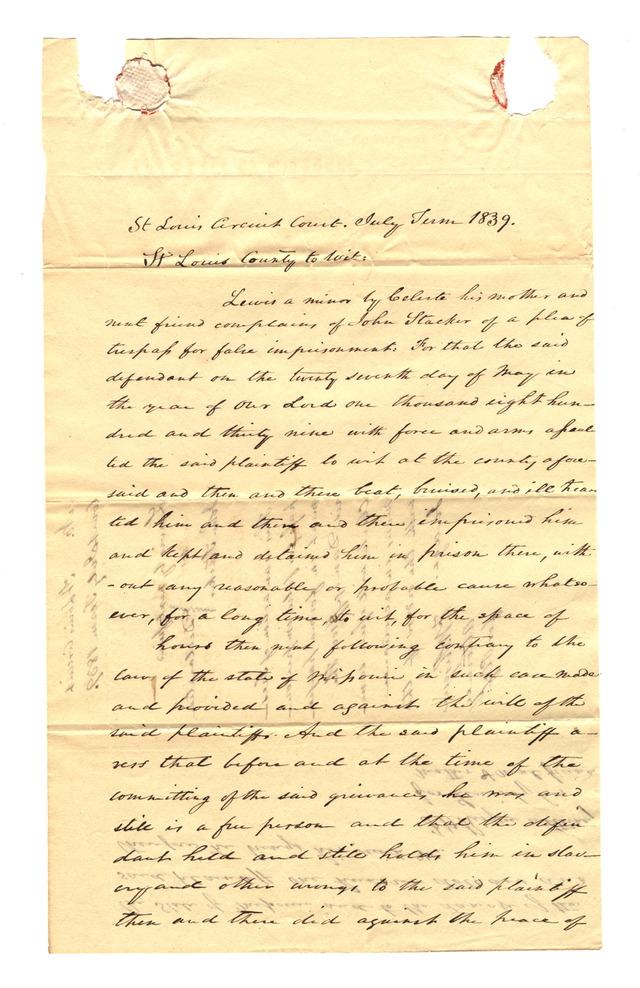 St Louis Circuit Court. July Term 1839.
St Louis County to wit:
Lewis a minor by Celeste his mother and
next friend complains of John Stacker of a plea of
trespass for false imprisonment. For that the said
defendant on the twenty seventh day of May in
the year of our Lord one thousand eight hun-
dred and thirty nine with force and arms assaul
ted the said plaintiff to wit at the county afore-
said and then and there beat, bruised, and ill trea-
ted him and then and there imprisoned him
and kept and detained him in prison there, with
-out any reasonable or probable cause whatso-
ever, for a long time, to wit, for the space of
hours then next following contrary to the
law of the state of Missouri in such case made
and provided and against the will of the
said plaintiff. And the said plaintiff a-
vers that before and at the time of the
committing of the said grievances he was and
still is a free person and that the defen
dant held and still holds him in slav-
ery and other wrongs to the said plaintiff
then and there did against the peace of